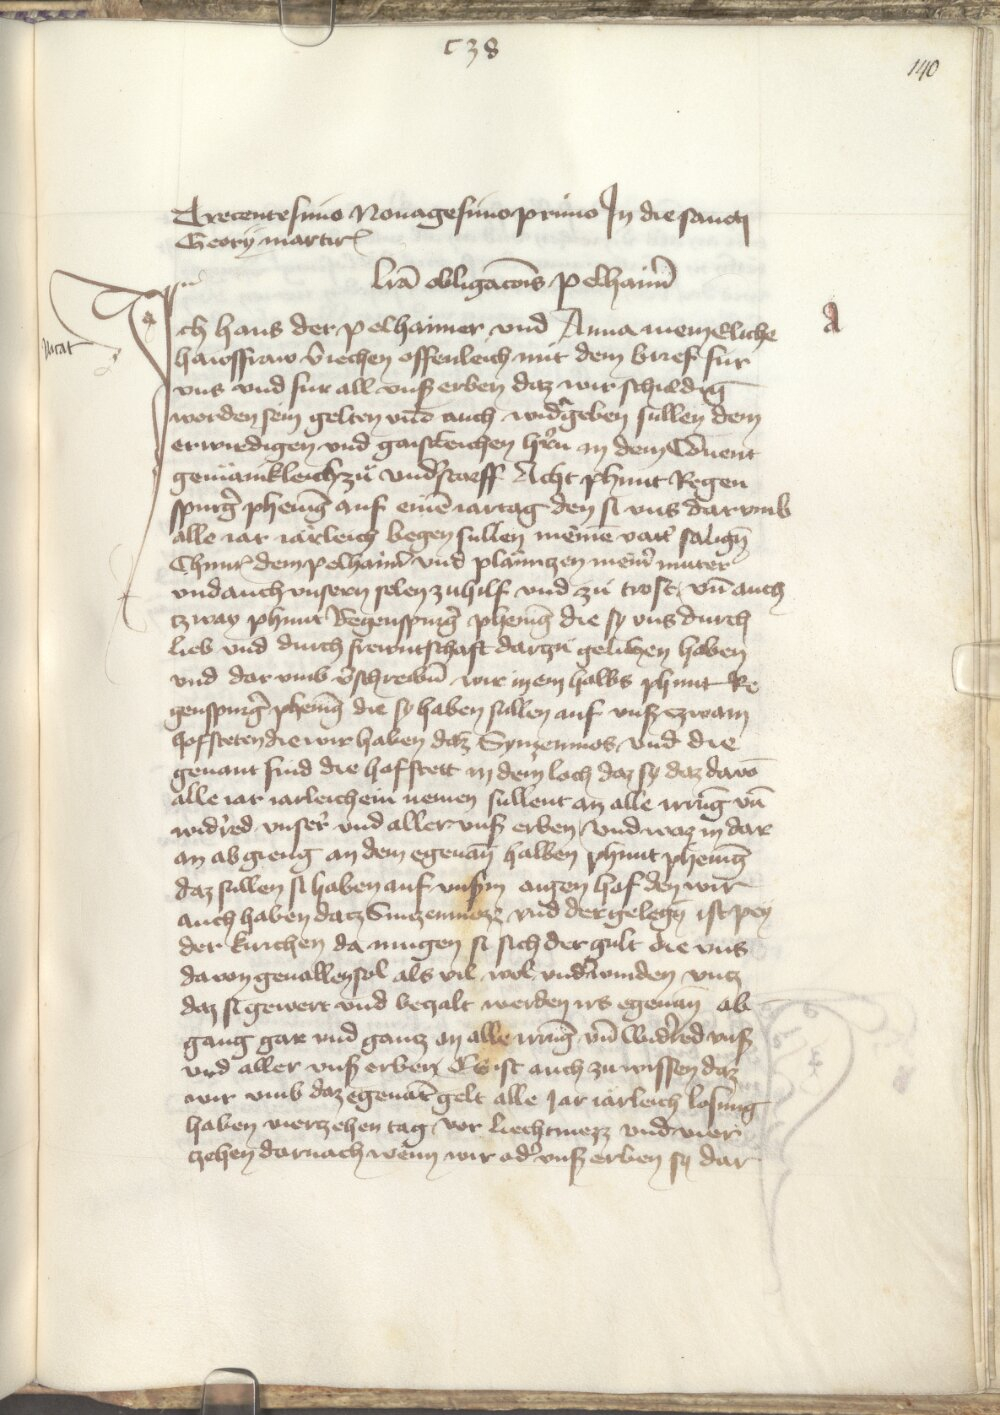 c38
140
Trecentesimo Nonagesimo primo In die sancti
Georij martir̄
Lrā obligacōis pelhaim̄
A
Ich hans der pelhaimer vnd Anna mein Eliche
vacat
hawsfraw v̄iechen offenleich mit dem brief fur
vns vnd fur all vnß erben daz wir schuldig
worden sein gelten vnd auch widgeben sullen dem
erwirdigen vnd gaistleichen hr̄n in dem Cōuent
gemainkleich zu vnd̄storff Acht phunt Regen
spurḡ phenīg auf einē iartag den si vns darvmb
alle iar iarleich begen sullen meinē vat̄ salign̄
Chunr̄ dem pelhaim̄ vnd plāmtzen mein̄ muter
vnd auch vnsern selen zu hilf vnd zu trost / vn̄ auch
tzway phunt Regenspurḡ phenīg die sy vns durch
lieb vnd durch frewntschaft dartzu gelihen haben
vnd dar vmb v̄schreibn̄ wir in ein halbs phunt Re
genspurḡ phenīg die sy haben sullen auf vnß tzwain
hofsteten die wir haben datz Synzenmos vnd die
genant sind die hofstett in dem loch daz sy daz davō
alle iar iarleich ein nemen sullent an alle irrūg vn̄
widred vnser̄ vnd aller vnß erben / Vnd waz in dar
an ab gieng an dem egenan̄ halben phunt phenīg
daz sullen si haben auf vnßm aigen hof den wir
auch haben datz Sintzenmozz vnd der gelegn̄ ist pey
der kirchen da mugen si sich der gult die vns
da von geuallen sol als vil wol vnd̄winden vntz
daz si gewert vnd betzalt werden irs egenan̄ ab
gang gar vnd gantz an alle irrūg vn̄ Widred vnß
vnd aller vnß erben Es ist auch zu wissen daz
wir vmb daz egenāt gelt alle Jar iarleich losung
haben viertzehen tag vor liechtmezz vnd vier
tzehen darnach wenn wir od̄ vnß erben sy dar